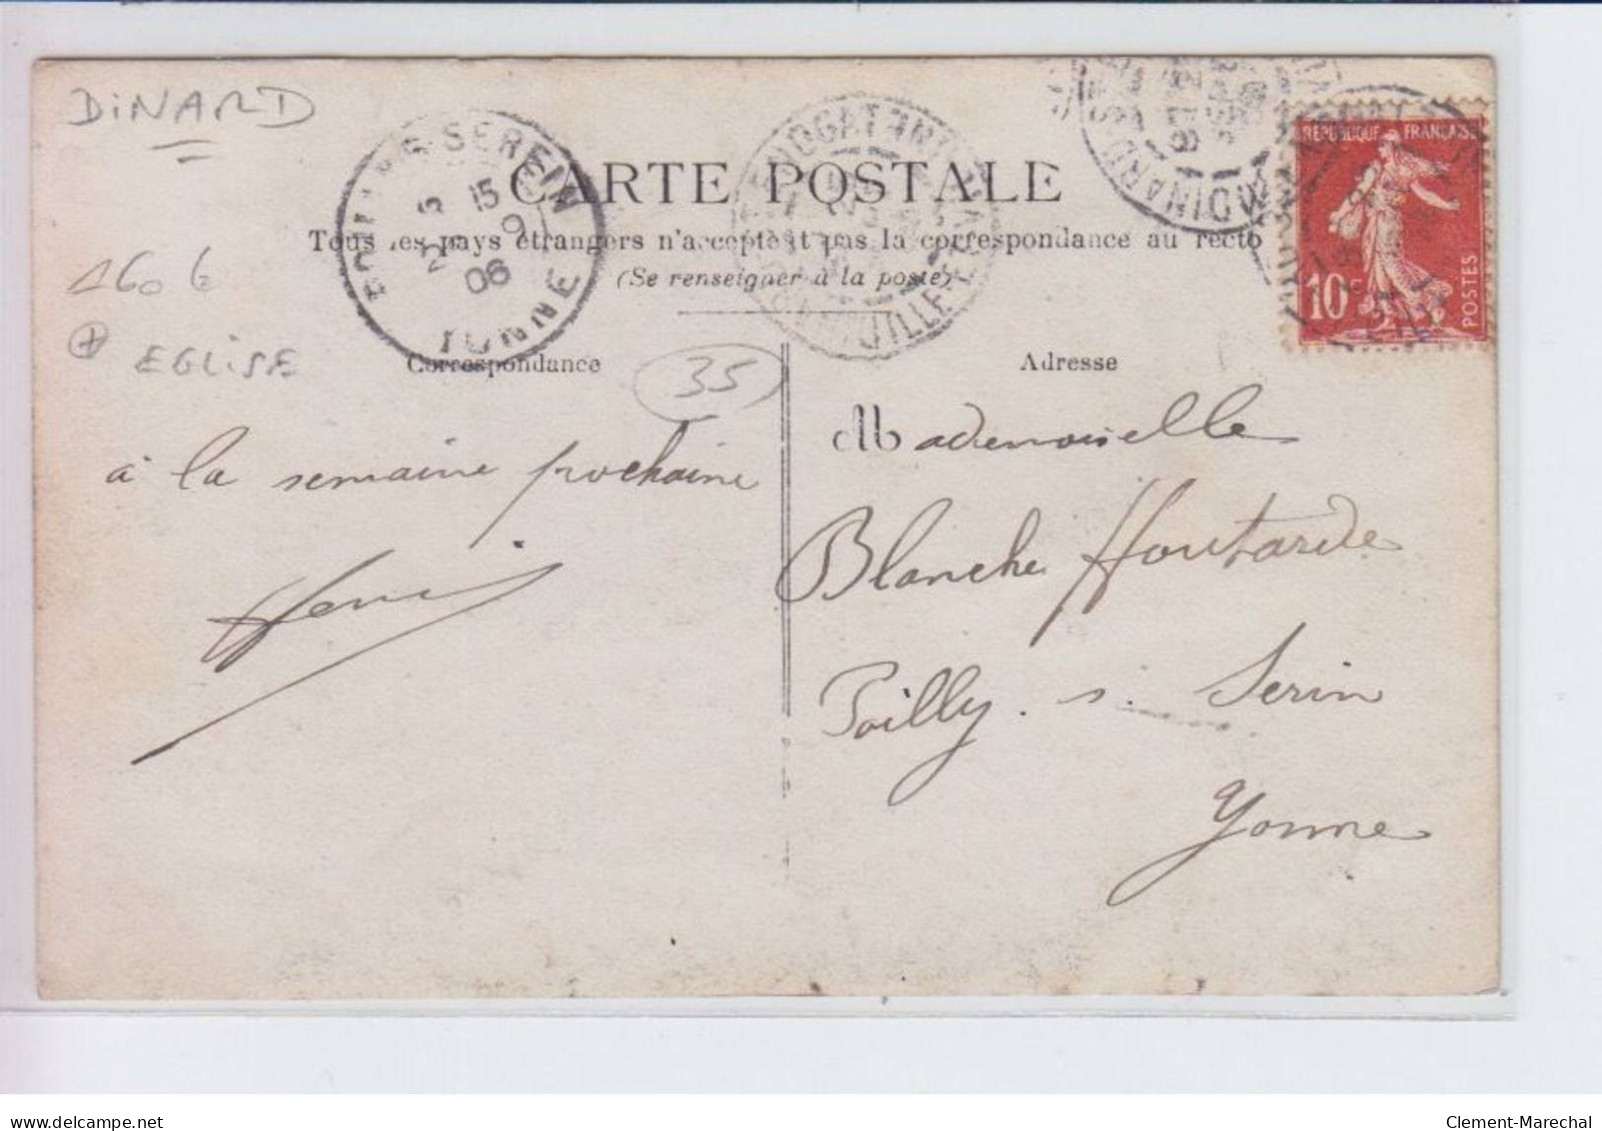 DiNARD
CARTE POSTALE
Tous les pays étrangers n'acceptent pas la correspondance au recto
(Se renseigner à la poste)
160 €
EGLiSE
35
Correspondance
Adresse
SEREIN
15
9
06
YONNE
DINARD
RÉPUBLIQUE FRANÇAISE
10c
POSTES
à la semaine prochaine
Henri
Mademoiselle
Blanche Houtarde
Poilly . s. Serin
Yonne
delcampe.net
Clement-Marechal